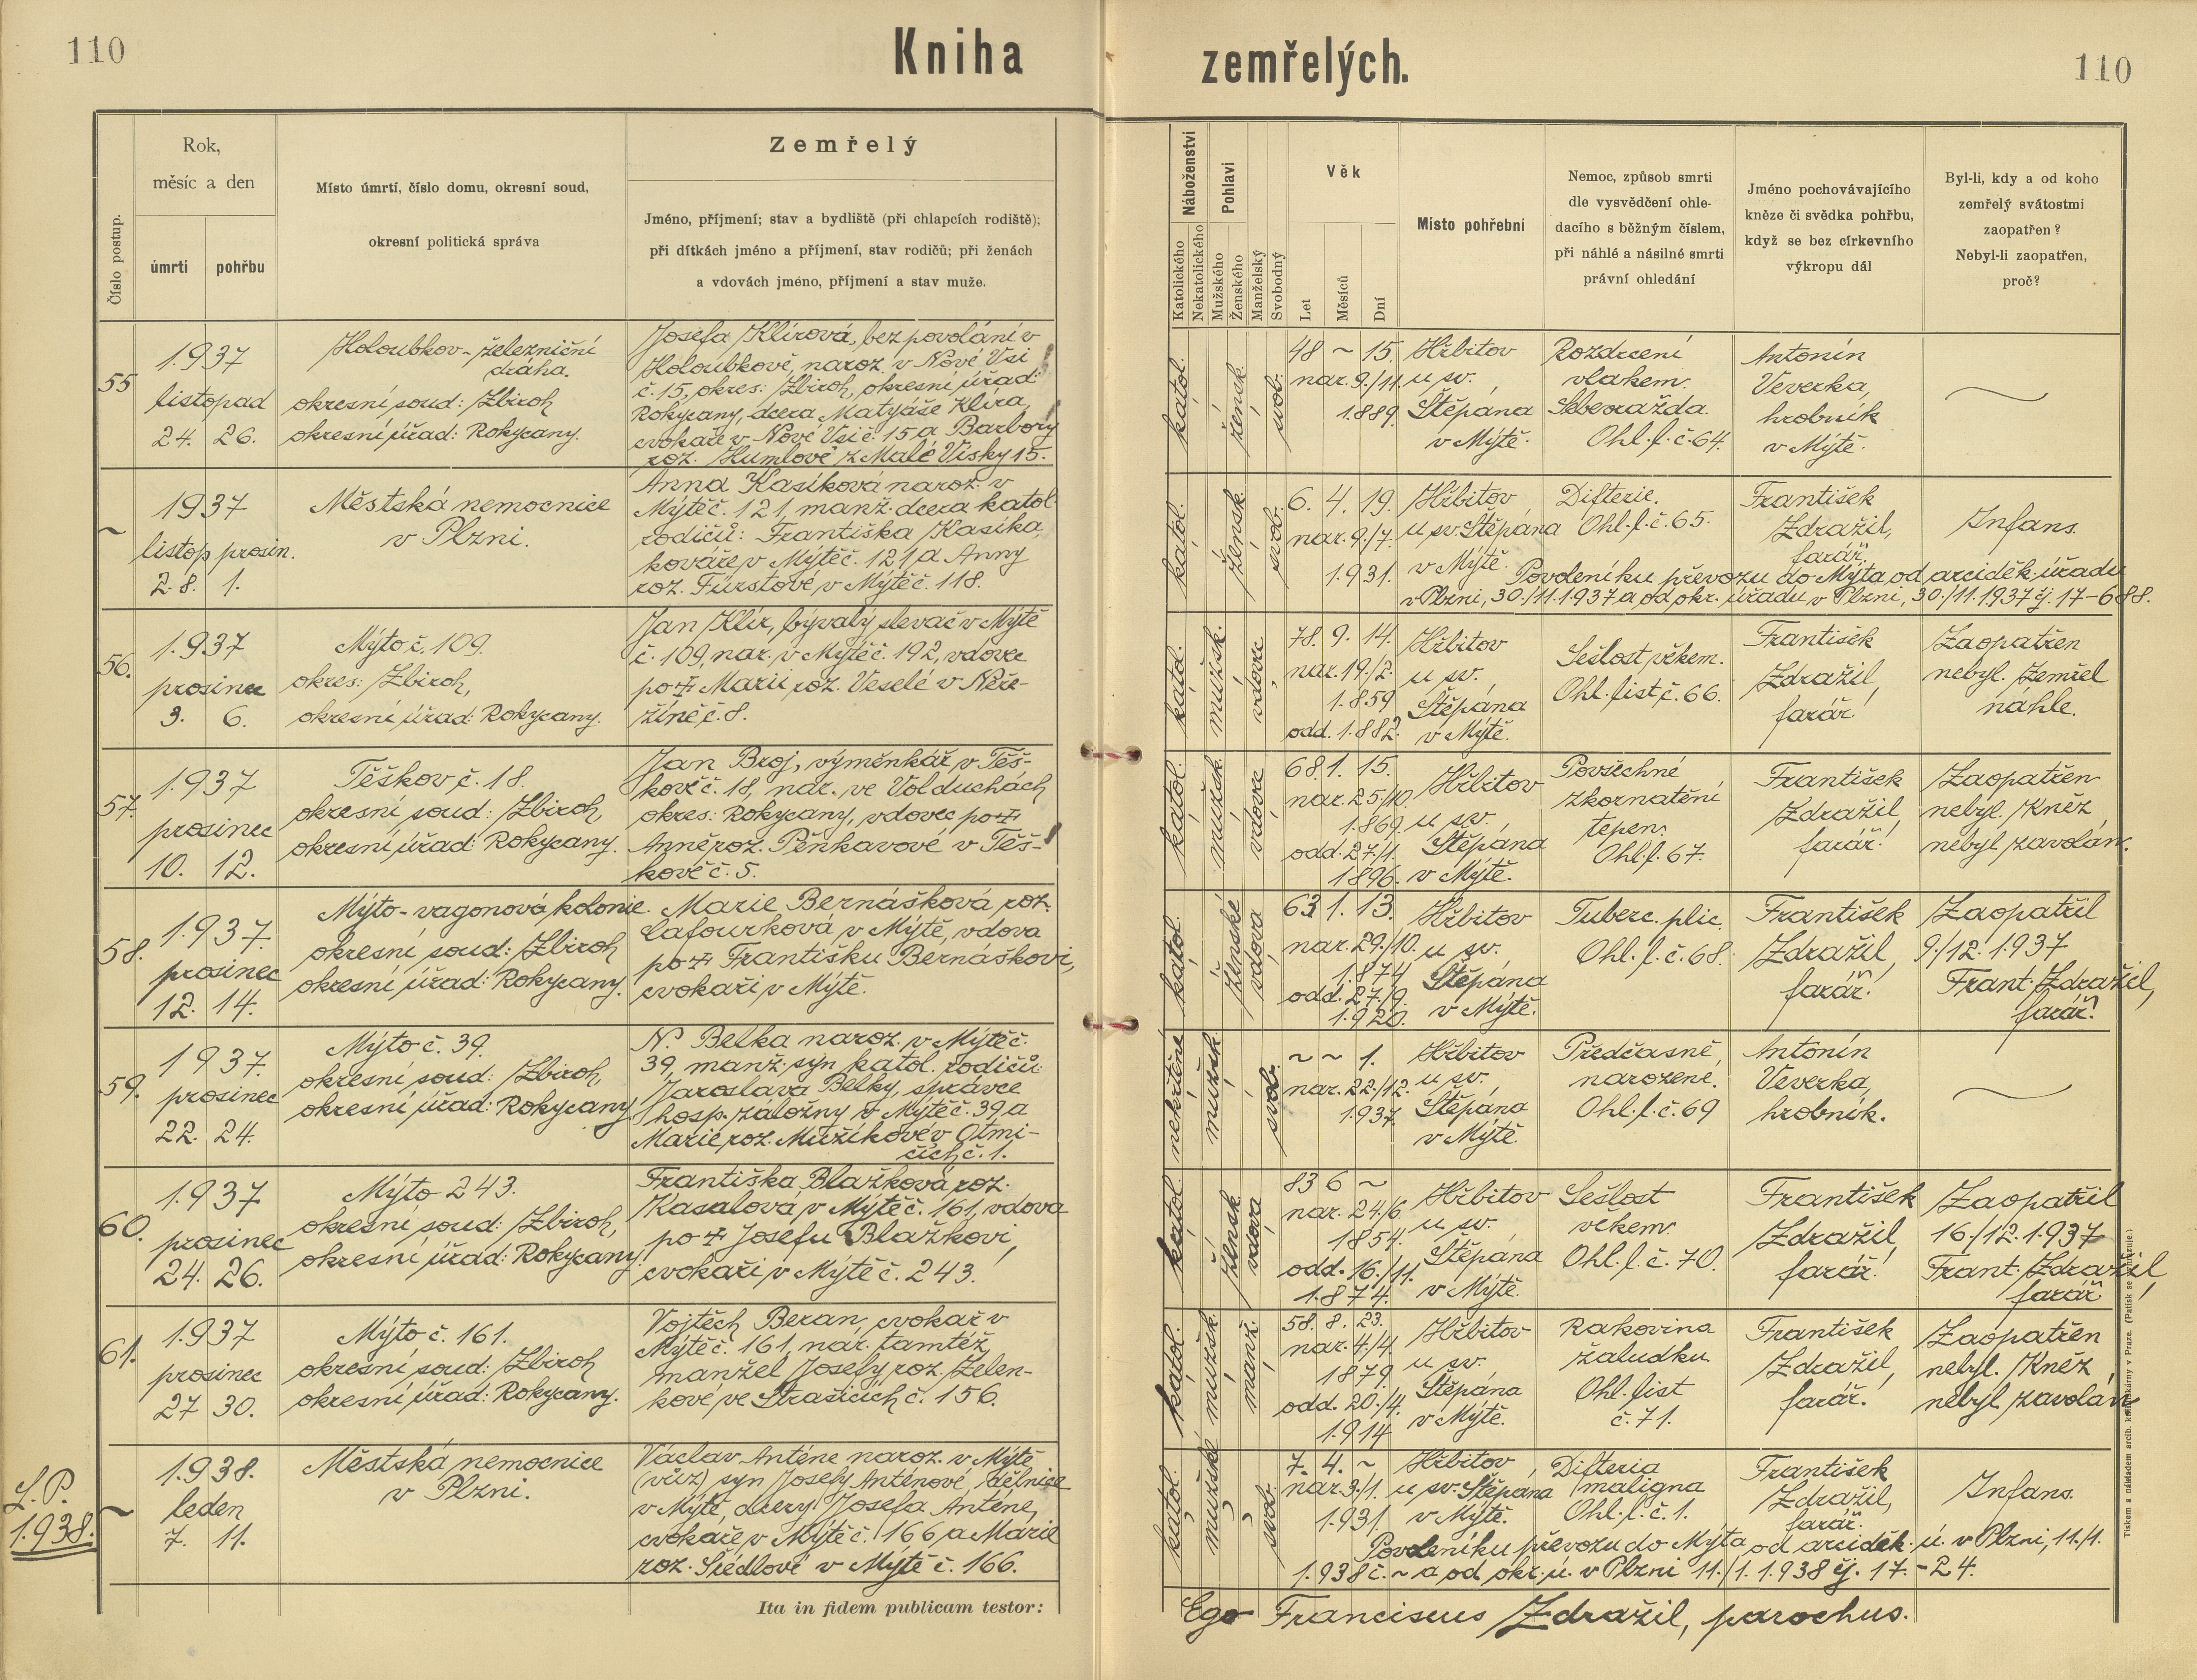 110
Kniha zemřelých.
110
Číslo postup.
Rok,
měsíc a den
úmrtí
pohřbu
Místo úmrtí, číslo domu, okresní soud,
okresní politická správa
Zemřelý
Jméno, příjmení; stav a bydliště (při chlapcích rodiště);
při dítkách jméno a příjmení, stav rodičů; při ženách
a vdovách jméno, příjmení a stav muže.
Náboženství
Katolického
Nekatolického
Pohlaví
Mužského
Ženského
Manželský
Svobodný
Věk
Let
Měsíců
Dní
Místo pohřební
Nemoc, způsob smrti
dle vysvědčení ohle-
dacího s běžným číslem,
při náhlé a násilné smrti
právní ohledání
Jméno pochovávajícího
kněze či svědka pohřbu,
když se bez církevního
výkropu dál
Byl-li, kdy a od koho
zemřelý svátostmi
zaopatřen?
Nebyl-li zaopatřen,
proč?
55
1937
listopad
24. 26.
Holoubkov - železniční
dráha.
okresní soud: Zbiroh
okresní úřad: Rokycany.
Josefa Klírová, bez povolání v
Holoubkově, naroz. v Nové Vsi
č. 15, okres: Zbiroh, okresní úřad:
Rokycany, dcera Matyáše Klíra,
cvokaře v Nové Vsi č. 15 a Barbory
roz. Humlové z Malé Vísky 15.
katol.
žensk.
svob.
48 ~ 15.
nar. 9./11.
1889.
Hřbitov
u sv.
Štěpána
v Mýtě.
Rozdrcení
vlakem.
Sebevražda.
Ohl. l. č. 64.
Antonín
Veverka,
hrobník
v Mýtě.
~
1937
listop. prosin.
28. 1.
Městská nemocnice
v Plzni.
Anna Kasíková naroz. v
Mýtě č. 121, manž. dcera katol.
rodičů: Františka Kasíka,
kováře v Mýtě č. 121 a Anny
roz. Fürstové v Mýtě č. 118.
katol.
žensk.
svob.
6. 4. 19.
nar. 9./7.
1931.
Hřbitov
u sv. Štěpána
v Mýtě.
Difterie.
Ohl. l. č. 65.
František
Zdražil,
farář.
Infans.
Povolení ku převozu do Mýta od arciděk. úřadu
v Plzni, 30./11. 1937 a od okr. úřadu v Plzni, 30./11. 1937 čj. 17-688.
56.
1937
prosinec
3. 6.
Mýto č. 109.
okres: Zbiroh,
okresní úřad: Rokycany.
Jan Klír, bývalý slevač v Mýtě
č. 109, nar. v Mýtě č. 192, vdovec
po ✝ Marii roz. Veselé v Neře-
žíně č. 8.
katol.
mužsk.
vdovec
78. 9. 14.
nar. 19./2.
1859
odd. 1882.
Hřbitov
u sv.
Štěpána
v Mýtě.
Sešlost věkem.
Ohl. list č. 66.
František
Zdražil,
farář.
Zaopatřen
nebyl. Zemřel
náhle.
57.
1937
prosinec
10. 12.
Těškov č. 18.
okresní soud: Zbiroh,
okresní úřad: Rokycany.
Jan Broj, výměnkář v Těš-
kově č. 18, nar. ve Volduchách
okres: Rokycany, vdovec po ✝
Anně roz. Pěnkavové v Těš-
kově č. 5.
katol.
mužsk.
vdovec
68. 1. 15.
nar. 25./10.
1869.
odd. 27./1.
1896.
Hřbitov
u sv.
Štěpána
v Mýtě.
Povšechné
zkornatění
tepen.
Ohl. l. 67.
František
Zdražil,
farář.
Zaopatřen
nebyl. Kněz
nebyl zavolán.
58.
1937.
prosinec
12. 14.
Mýto - vagonová kolonie.
okresní soud: Zbiroh
okresní úřad: Rokycany.
Marie Bernášková roz.
Cafourková v Mýtě, vdova
po ✝ Františku Bernáškovi,
cvokaři v Mýtě.
katol.
ženské
vdova
63 1. 13.
nar. 29./10.
1874
odd. 27./9.
1920.
Hřbitov
u sv.
Štěpána
v Mýtě.
Tuberc. plic.
Ohl. l. č. 68.
František
Zdražil,
farář.
Zaopatřil
9./12. 1937
Frant. Zdražil,
farář.
59.
1937.
prosinec
22. 24.
Mýto č. 39.
okresní soud: Zbiroh,
okresní úřad: Rokycany
N. Belka naroz. v Mýtě č.
39, manž. syn katol. rodičů:
Jaroslava Belky, správce
hosp. záložny v Mýtě č. 39 a
Marie roz. Mužíkové v Otmí-
čích č. 1.
nekřtěné
mužsk.
svob.
~ ~ 1.
nar. 22./12.
1937.
Hřbitov
u sv.
Štěpána
v Mýtě.
Předčasně
narozené.
Ohl. l. č. 69
Antonín
Veverka,
hrobník.
60.
1937
prosinec
24. 26.
Mýto 243.
okresní soud: Zbiroh,
okresní úřad: Rokycany.
Františka Blažková roz.
Kasalová v Mýtě č. 161, vdova
po ✝ Josefu Blažkovi,
cvokaři v Mýtě č. 243.
katol.
žensk.
vdova
83 6 ~
nar. 24/6
1854.
odd. 16./11.
1874.
Hřbitov
u sv.
Štěpána
v Mýtě.
Sešlost
věkem.
Ohl. l. č. 70.
František
Zdražil,
farář.
Zaopatřil
16./12. 1937
Frant. Zdražil,
farář.
61.
1937
prosinec
27 30.
Mýto č. 161.
okresní soud: Zbiroh
okresní úřad: Rokycany.
Vojtěch Beran, cvokař v
Mýtě č. 161, nar. tamtéž,
manžel Josefy roz. Zelen-
kové ve Strašicích č. 156.
katol.
mužsk.
manž.
58. 8. 23.
nar. 4./4.
1879.
odd. 20./4.
1914
Hřbitov
u sv.
Štěpána
v Mýtě.
Rakovina
žaludku
Ohl. list
č. 71.
František
Zdražil,
farář.
Zaopatřen
nebyl. Kněz
nebyl zavolán
L. P.
1938.
~
1938.
leden
7. 11.
Městská nemocnice
v Plzni.
Václav Anténe naroz. v Mýtě
syn Josefy Anténové, dělnice
v Mýtě, dcery Josefa Anténe,
cvokaře v Mýtě č. 166 a Marie
roz. Šiédlové v Mýtě č. 166.
katol.
mužské
svob.
7. 4. ~
nar. 3./1.
1931
Hřbitov
u sv. Štěpána
v Mýtě.
Difteria
maligna
Ohl. l. č. 1.
František
Zdražil,
farář.
Infans.
Povolení ku převozu do Mýta od arciděk. ú. v Plzni, 11./1.
1938 č. ~ a od okr. ú. v Plzni 11./1. 1938 čj. 17.-24.
Ita in fidem publicam testor:
Ego Franciscus Zdražil, parochus.
Tiskem a nákladem arcib. knihtiskárny v Praze. (Patisk se